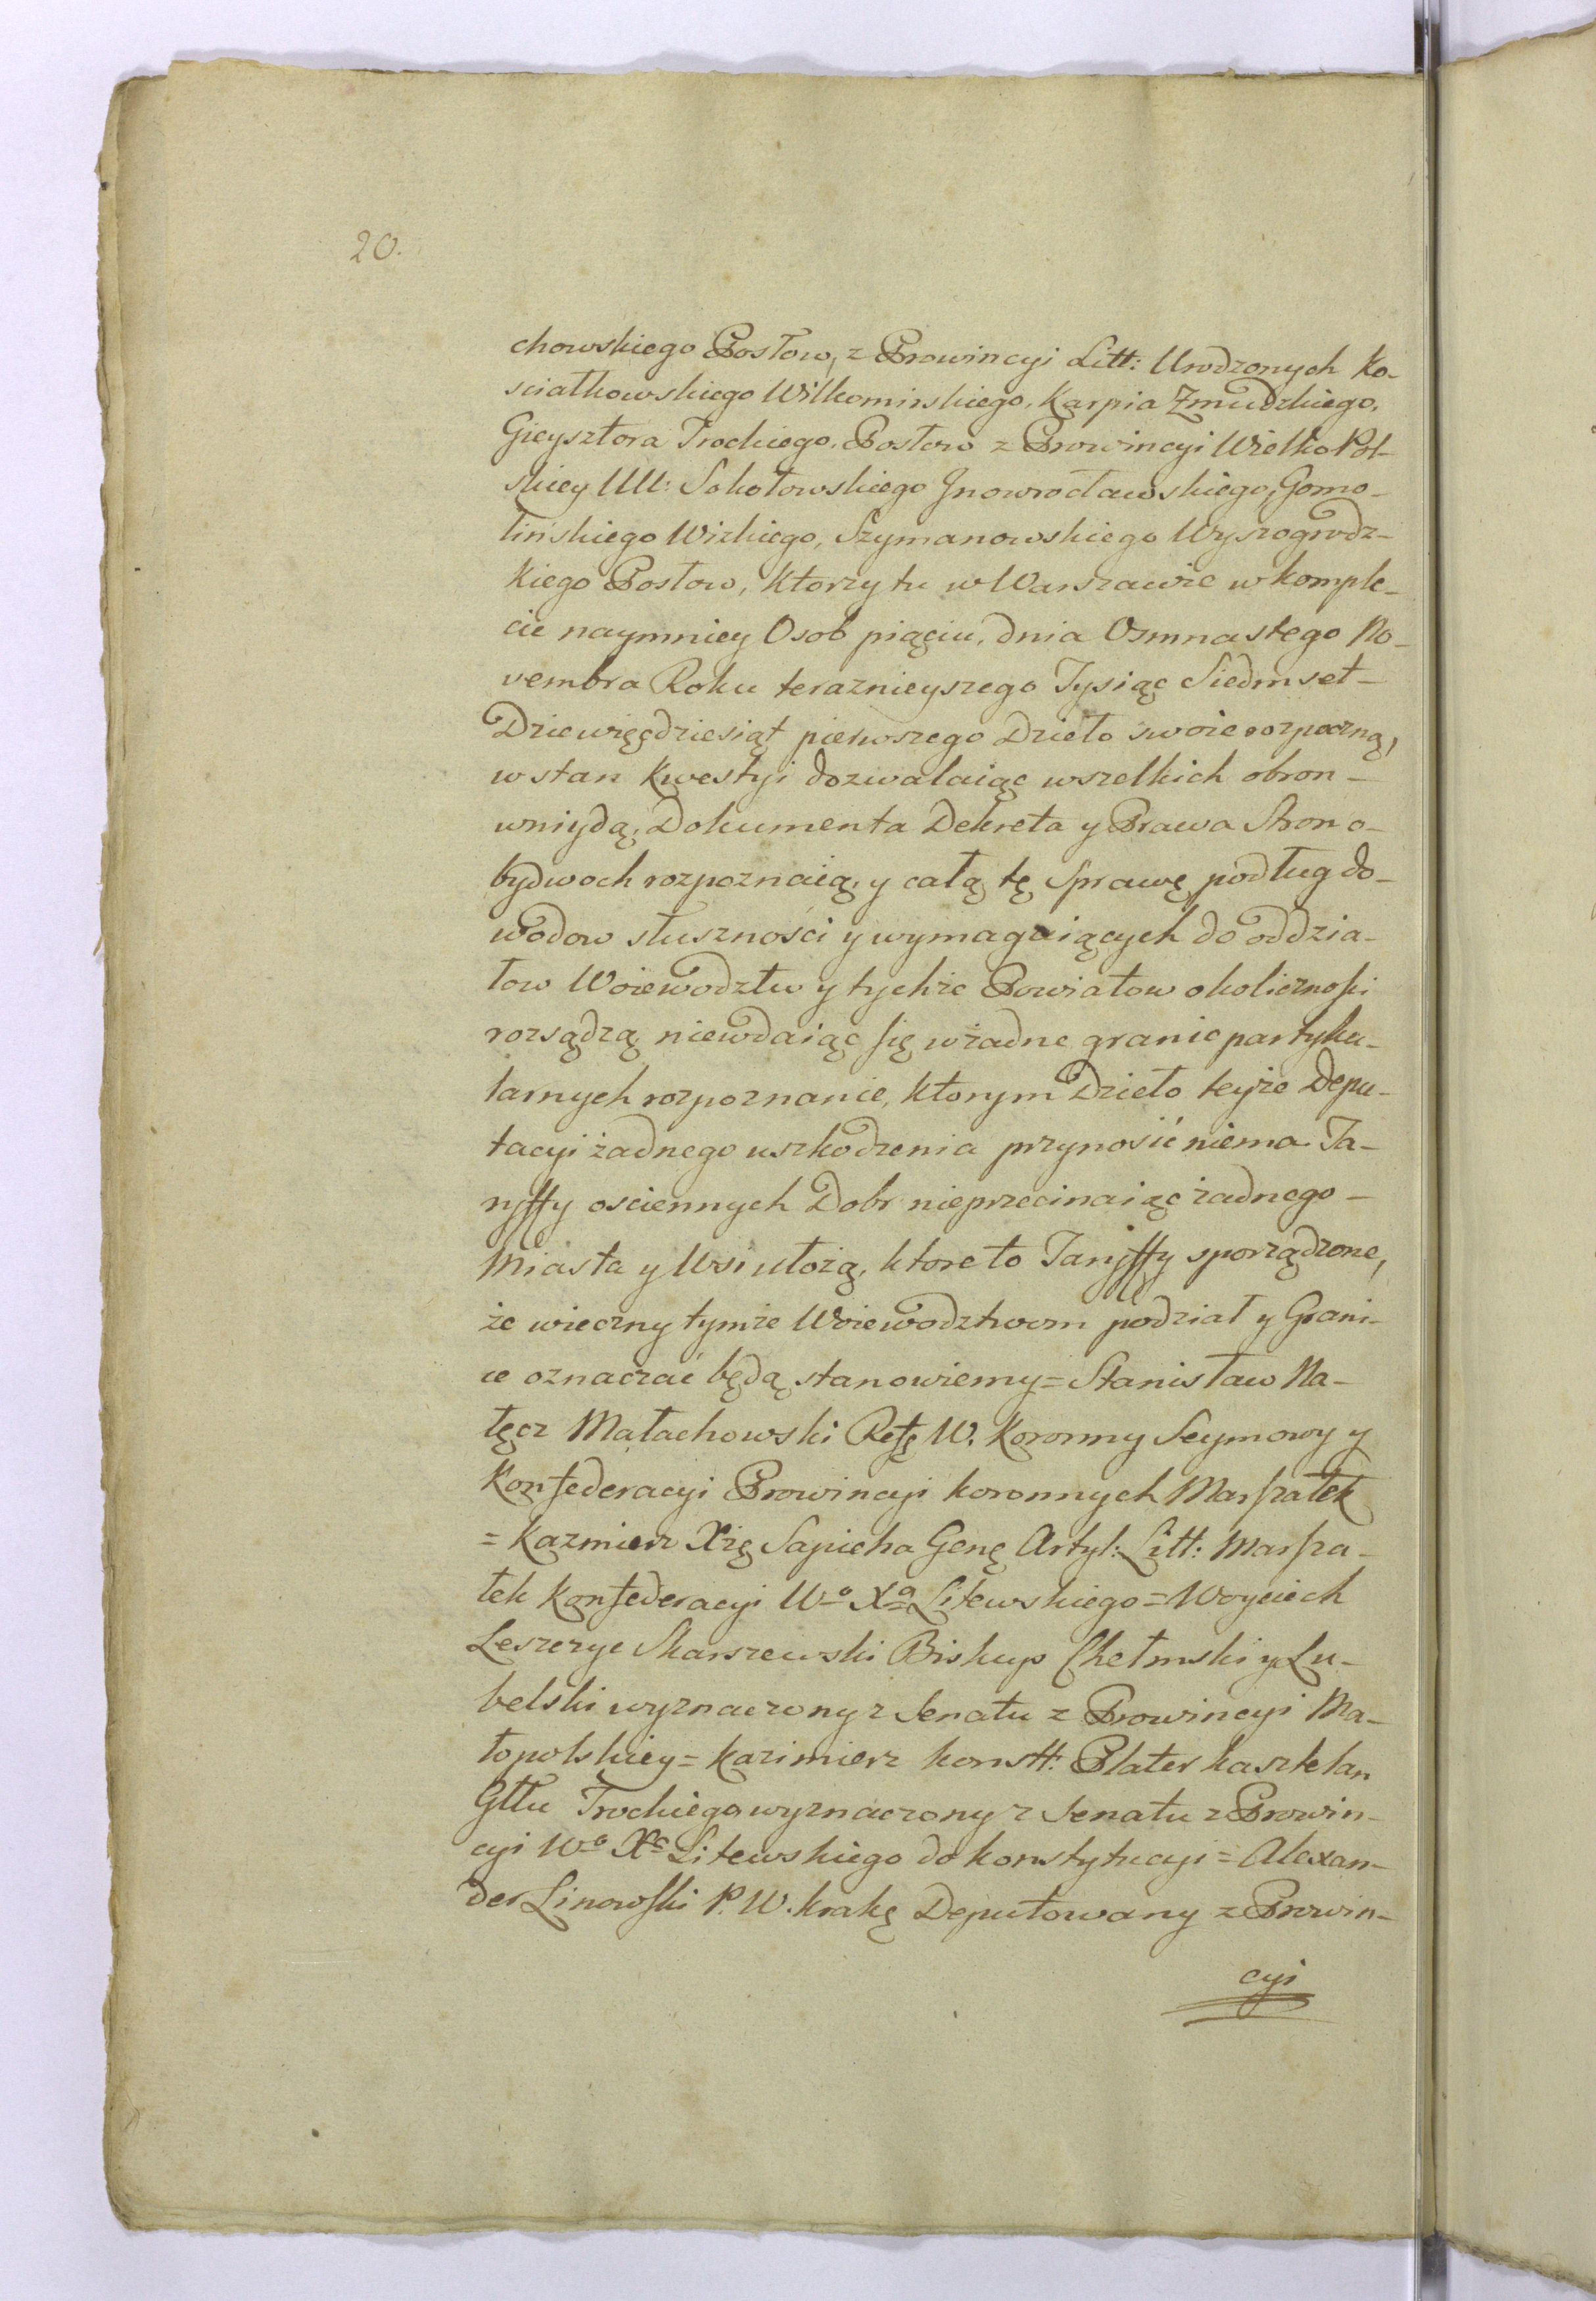 20.
chowskiego Posłow, z Prowincyi Litt: Urodzonych Ko-
sciałkowskiego Wilkomirskiego, Karpia Zmudzkiego,
Gieysztora Trockiego. Posłow z Prowincyi Wielko Pol-
skiey UU: Sokołowskiego Jnowrocławskiego, Gomo-
lińskiego Wizkiego, Szymanowskiego Wyszogrodz-
kiego Posłow, ktorzy tu w Warszawie w komple-
cie naymniey Osob piąciu, dnia Osmnastego No-
vembra Roku teraznieyszego Tysiąc Siedmset-
Dziewięćdziesiąt pierwszego Dzieło swoie rozpoczną,
w stan Kwestyi dozwalaiąc wszelkich obron-
wniydą, Dokumenta Dekreta y Prawa Stron o-
bydwoch rozpoznaią, y całą tę Sprawę podług do-
wodow słuszności y wymagaiących do oddzia-
łow Woiewodztw y tychże Powiatow okolicznośći
rozsądzą niewdaiąc się w żadne granic partyku-
larnych rozpoznanie, ktorym Dzieło teyże Depu-
tacyi żadnego uszkodzenia przynosić niema. Ta-
ryffy osciennych Dobr nieprzecinaiąc żadnego-
Miasta y Wsi ułożą, ktore to Taryffy sporządzone,
że wieczny tymże Woiewodztwom podział y Grani-
ce oznaczać będą stanowiemy = Stanisław Na-
łęcz Małachowski Refę W. Koronny Seymowy y
Konfederacyi Prowincyi koronnych Marszałek
= Kazmierz Xżę Sapieha Genę Artyl: Litt: Marsza-
łek Konfederacyi Wo Xa Litewskiego = Woyciech
Leszczyc Skarszewski Biskup Chełmski y Lu-
belski wyznaczony z Senatu z Prowincyi Ma-
łopolskiey = Kazimierz konstt: Plater kasztelan
Gttu Trockiego wyznaczony z Senatu z Prowin-
cyi Wo Xo Litewskiego do konstytucyi = Alexan-
der Linowski P. W. krakę Deputowany z Prowin-
cyi